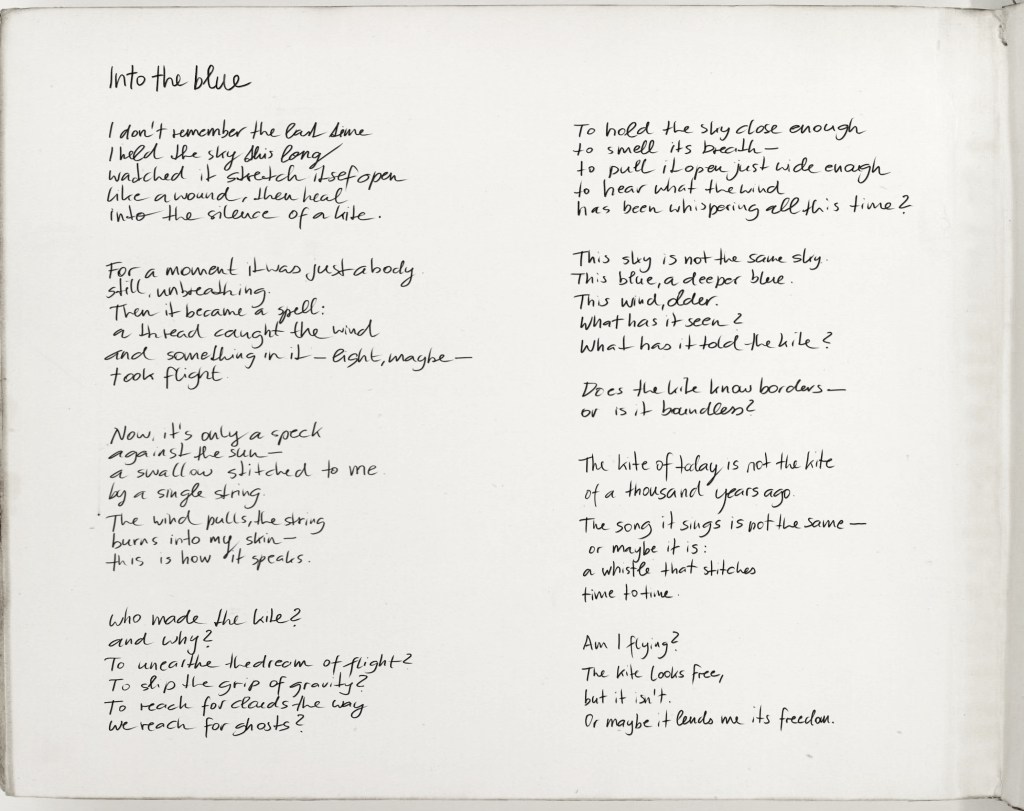 Into the blue
I don't remember the last time
I held the sky this long
watched it stretch itsef open
like a wound, then heal
into the silence of a kite.
For a moment it was just a body
still, unbreathing.
Then it became a spell:
a thread caught the wind
and something in it – light, maybe –
took flight.
Now, it's only a speck
against the sun –
a swallow stitched to me
by a single string.
The wind pulls, the string
burns into my skin –
this is how it speaks.
Who made the kite?
and why?
To unearthe the dream of flight?
To slip the grip of gravity?
To reach for clouds the way
we reach for ghosts?
To hold the sky close enough
to smell its breath –
to pull it open just wide enough
to hear what the wind
has been whispering all this time?
This sky is not the same sky.
This blue, a deeper blue.
This wind, older.
What has it seen?
What has it told the kite?
Does the kite know borders –
or is it boundless?
The kite of today is not the kite
of a thousand years ago.
The song it sings is not the same –
or maybe it is:
a whistle that stitches
time to time.
Am I flying?
The kite looks free,
but it isn't.
Or maybe it lends me its freedom.